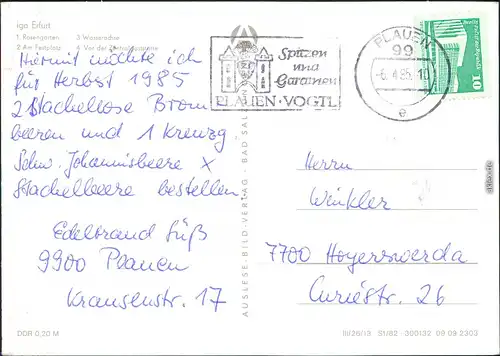 iga Erfurt
1 Rosengarten 3 Wasserachse
2 Am Festplatz 4 Vor der Zentralgaststätte
Hiermit möchte ich
für Herbst 1985
2 Stachellose Brom
beeren und 1 Kreuzg.
Schw. Johannisbeere x
Stachelbeere bestellen.
Edelbrand Süß
9900 Plauen
Krausenstr. 17
DDR 0,20 M
AUSLESE-BILD-VERLAG · BAD SALZUNGEN
Spitzen
und
Gardinen
PLAUEN · VOGTL
PLAUEN
99
-6.4.85.-10
e
10
Herrn
Winkler
7700 Hoyerswerda
Curiestr. 26
III/26/13 S1/82 - 300132 09 09 2303